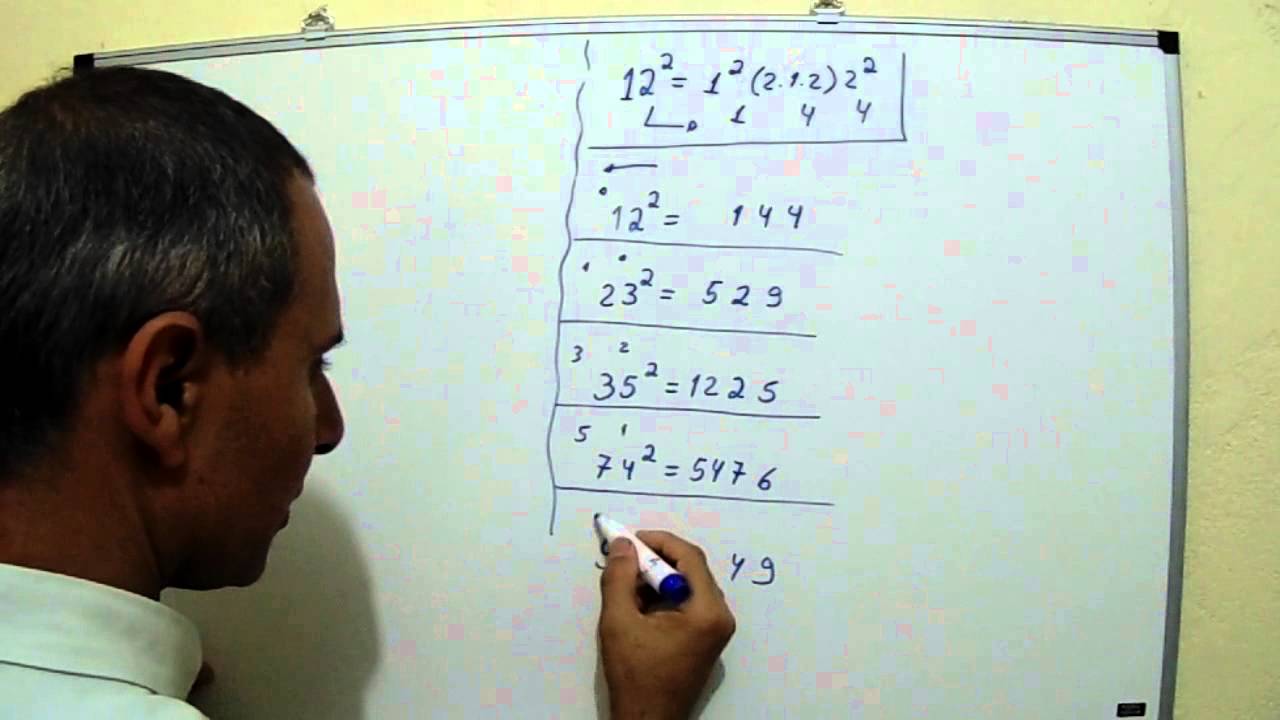 12² = 1² (2.1.2) 2²
1 4 4
12² = 144
1
23² = 529
3 2
35² = 1225
5 1
74² = 5476
9 49